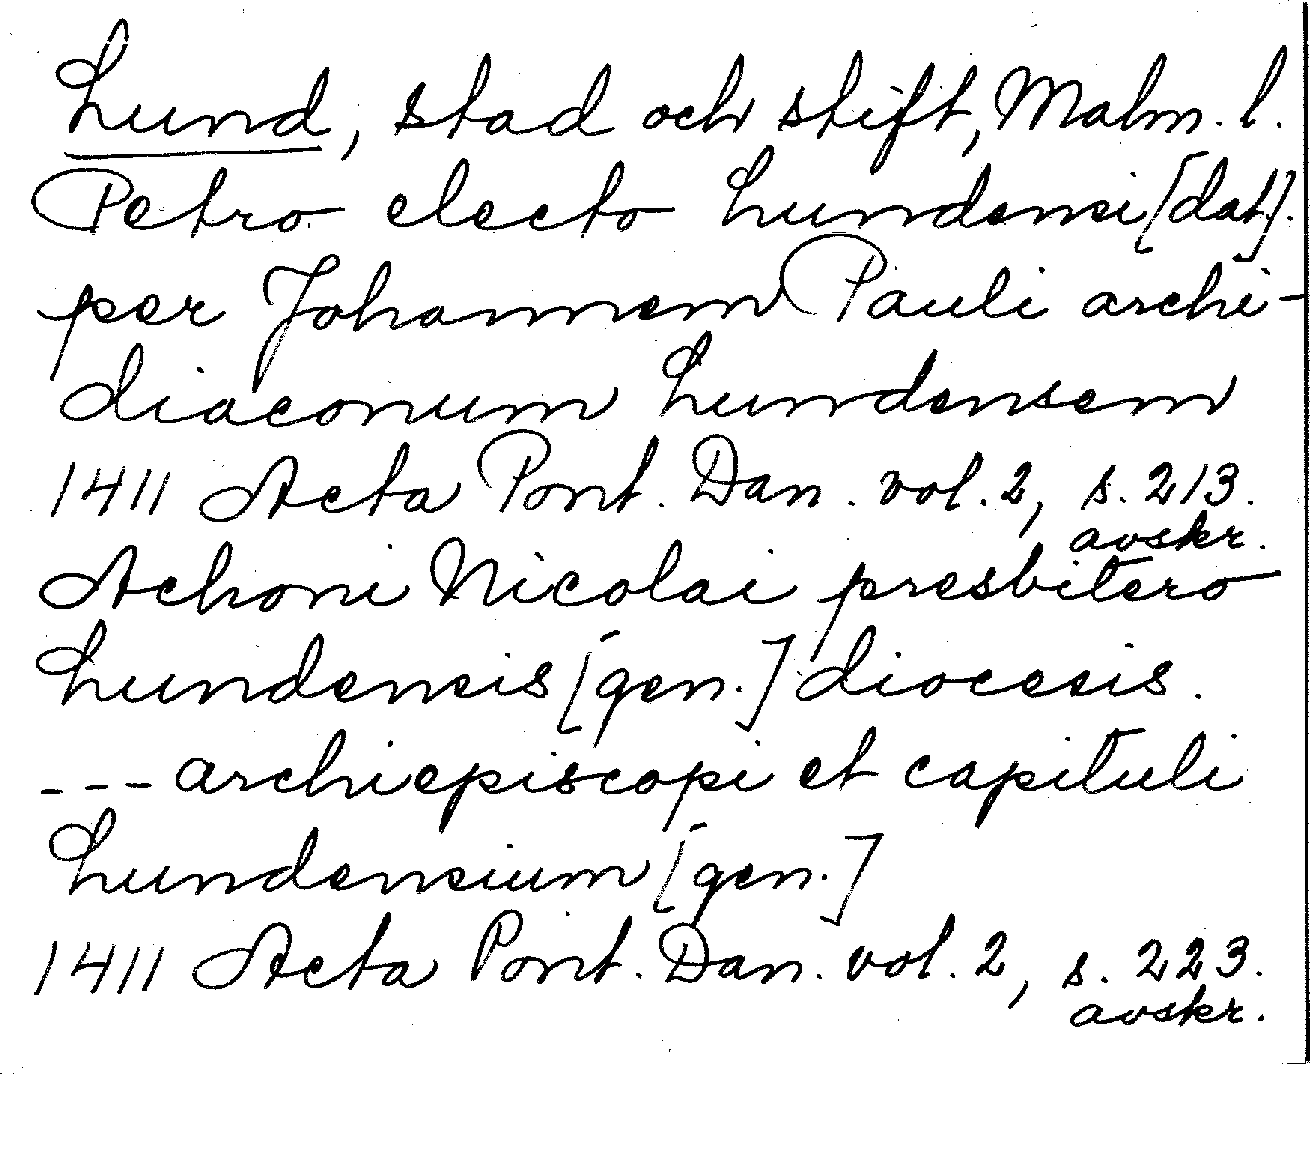 Lund, stad och stift, Malm. l.
Petro electo Lundensi [dat].
per Johannem Pauli archi-
diaconum Lundensem
1411 Acta Pont. Dan. vol. 2, s. 213.
avskr.
Achoni Nicolai presbitero
Lundensis [gen.] diocesis.
--- archiepiscopi et capituli
Lundensium [gen.]
1411 Acta Pont. Dan. vol. 2, s. 223.
avskr.